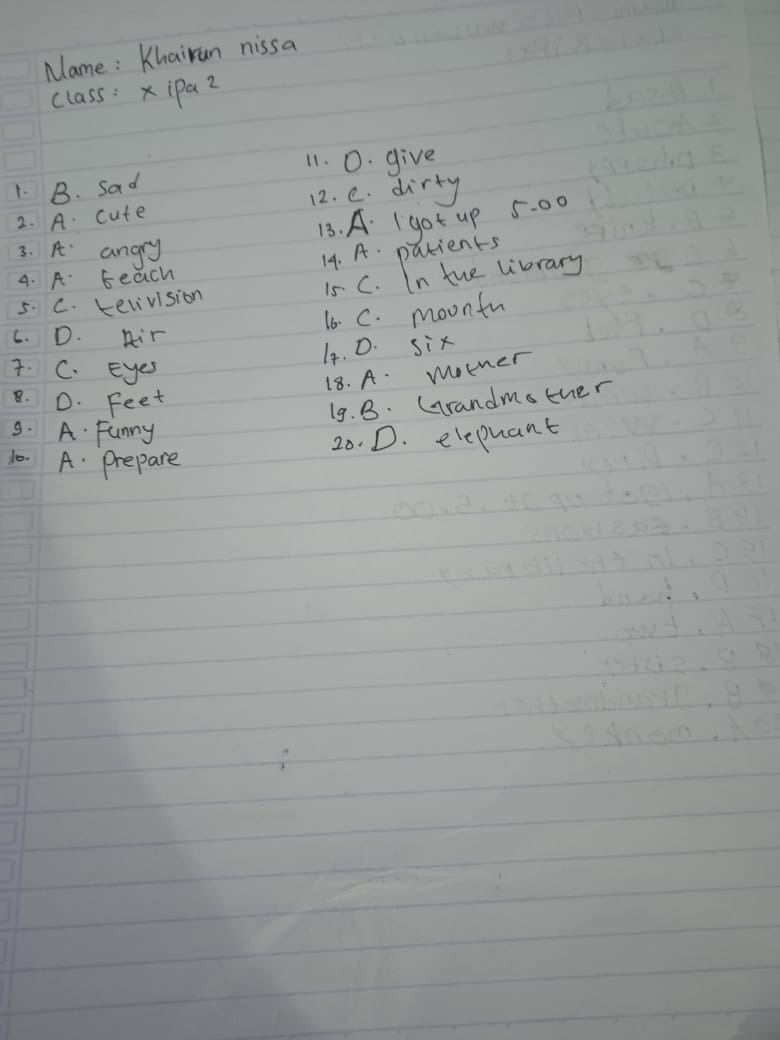 Name: Khairun nissa
Class: x ipa 2
1. B. sad
2. A. cute
3. A. angry
4. A. teach
5. C. telivision
6. D. Air
7. C. Eyes
8. D. Feet
9. A. Funny
10. A. Prepare
11. D. give
12. C. dirty
13. A. I got up 5.00
14. A. patients
15. C. In the library
16. C. mounth
17. D. six
18. A. Mother
19. B. Grandmother
20. D. elephant